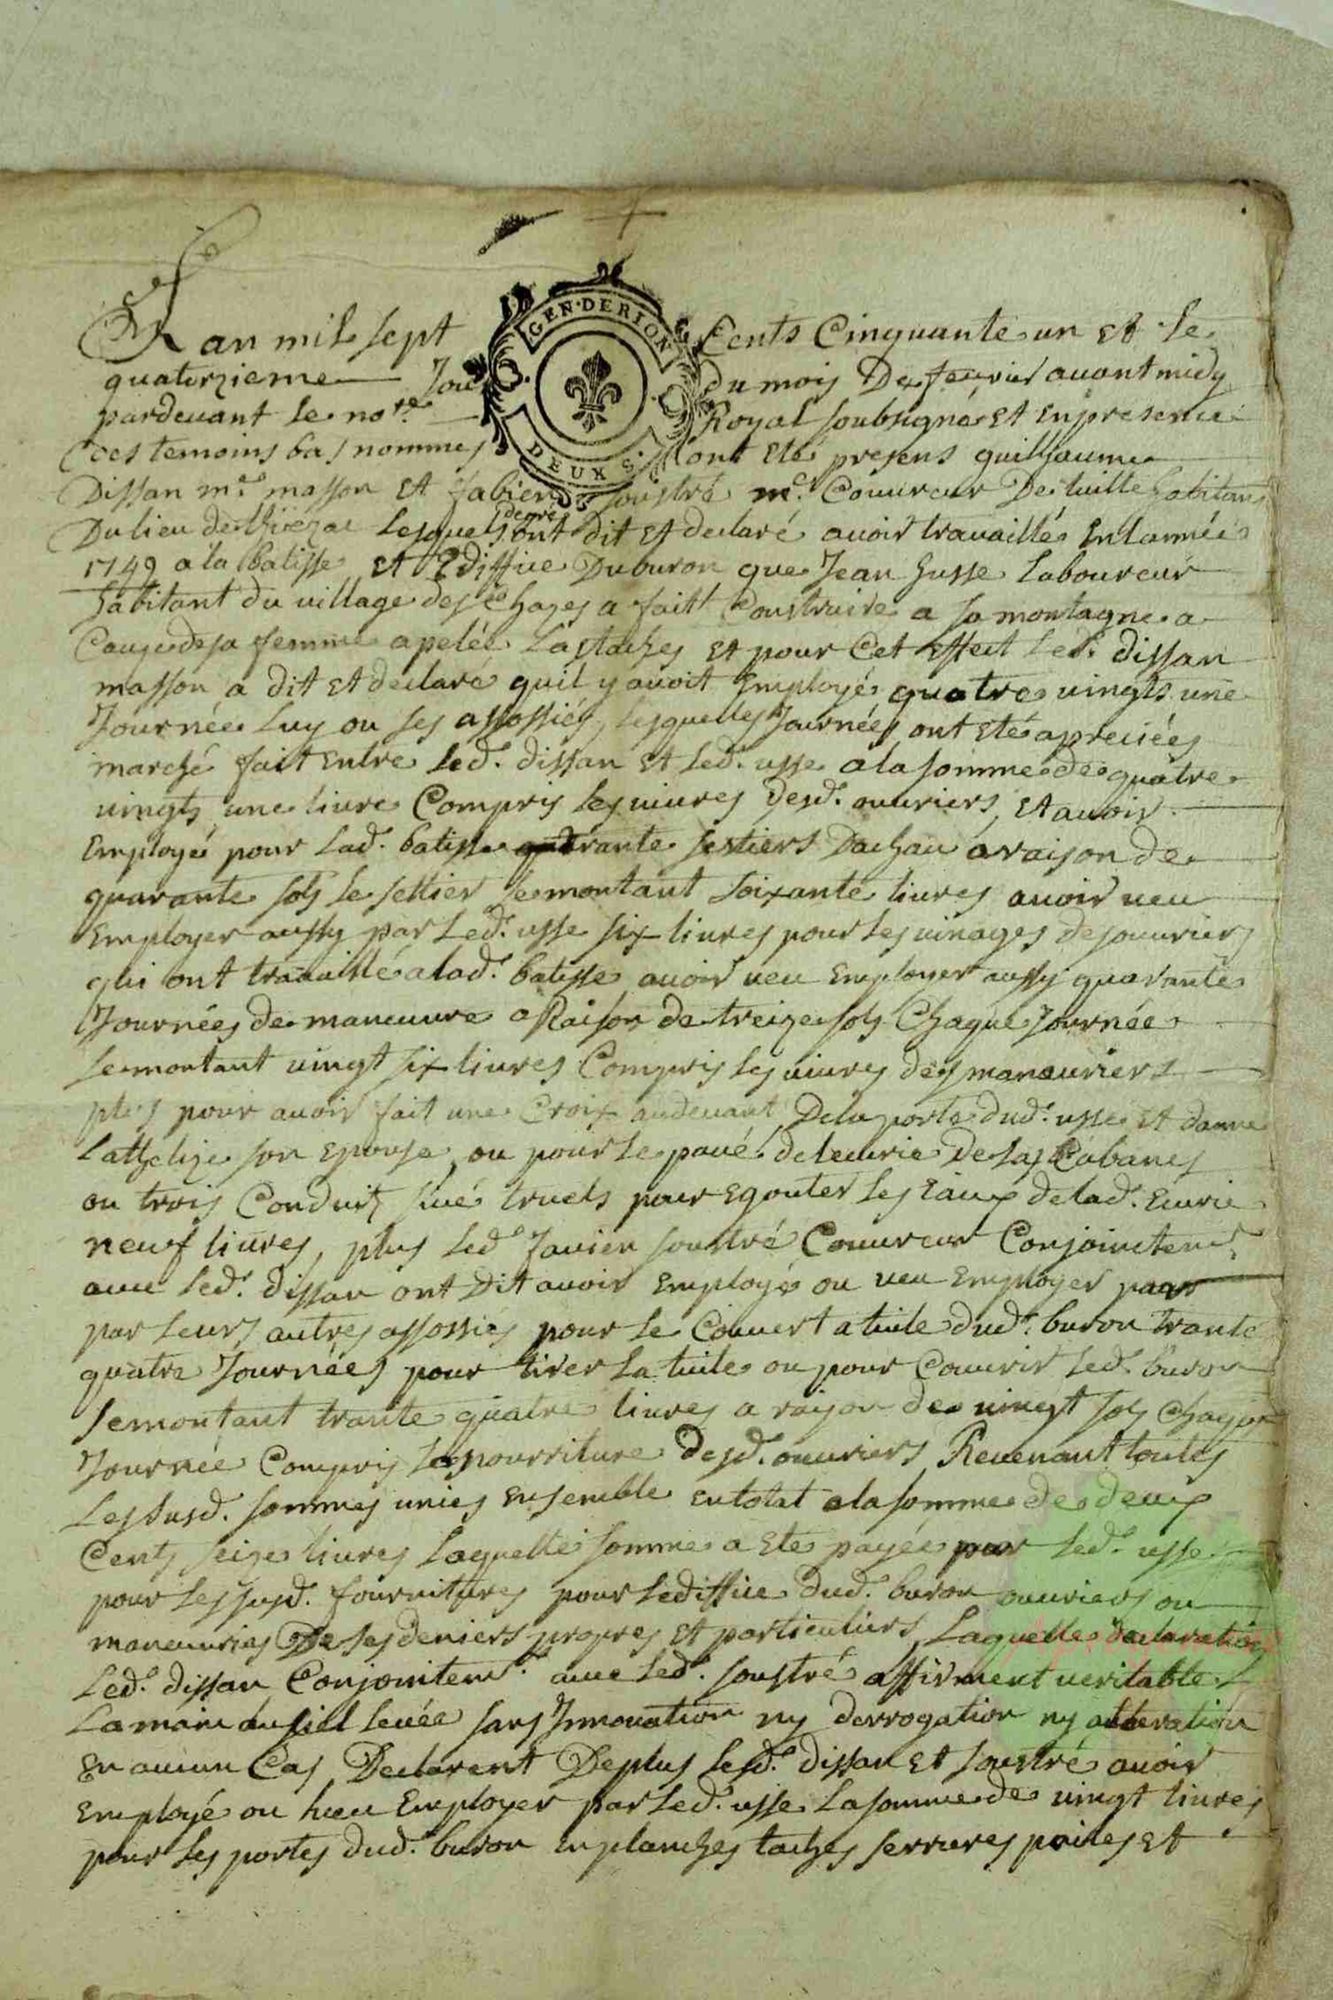 GEN·DERIOM
DEUX S.
L'an mil sept Cents Cinquante un et le
quatorzieme Jour du mois De fevrier avant midy
pardevant le nore. Royal soubsigné et en presence
des temoins bas nommes ont eté presens guilhaume
Dissan me. masson et fabien soustré me. Couvreur De tuille habitans
Du lieu de thiezac lesquels ont dit et declaré avoir travaillé en lannée
1749 a la Batisse et Ediffice Du buron que Jean husse laboureur
habitant du village des Chazes a fait Construire a sa montagne a
Cause de sa femme apelée Lastachez et pour Cet effect led. dissan
masson a dit et declaré quil y avoit Employé quatre vingts une
Journée Luy ou ses assossiés, lesquelles Journées ont eté apreciées
marché fait entre led. dissan et led. usse a la somme de quatre
vingts une livre Compris les vivres desd. ouvriers, et avoir
Employé pour lad. batisse quarante sestiers Dachau a raison de
quarante sols le settier se montant soixante livres avoir veu
Employer aussy par led. usse six livres pour les vinages des ouvriers
qui ont travaillé a lad. batisse avoir veu Employer aussy quarante
Journées de maneuvre a Raison de treize sols Chaque Journée
se montant vingt six livres Compris les vivres des maneuvriers
plus pour avoir fait une Croix au devant De la porte dud. usse et danne
son Epouse, ou pour le pavé de lecurie De las Cabanes
ou trois Conduits sivé truels pour Egouter les Eaux de lad. Ecurie
neuf livres, plus led. soustré Couvreur Conjointemt.
avec led. dissan ont Dit avoir Employé ou veu Employer
par leurs autres assossiés pour le Couvert a tuile dud. buron trante
quatre Journées pour tirer la tuile ou pour Couvrir led. buron
se montant trante quatre livres a raison de vingt sols Chaque
Journée Compris la nourriture desd. ouvriers, Revenant toutes
les susd. sommes unies Ensemble en total a la somme de deux
Cents seize livres laquelle somme a eté payée par led. usse
pour les susd. fournitures pour lediffice dud. buron ouvriers ou
maneuvries De ses deniers propres et particuliers, Laquelle declaration
led. dissan Conjointemt. avec led. soustré affirment veritable
La main au Ciel levée sans Innovation ny derrogation ny alteration
En aucun Cas Declarent De plus lesd. dissan et soustré avoir
Employé ou heu Employer par led. usse la somme de vingt livres
pour les portes dud. buron en planches taches serrures et